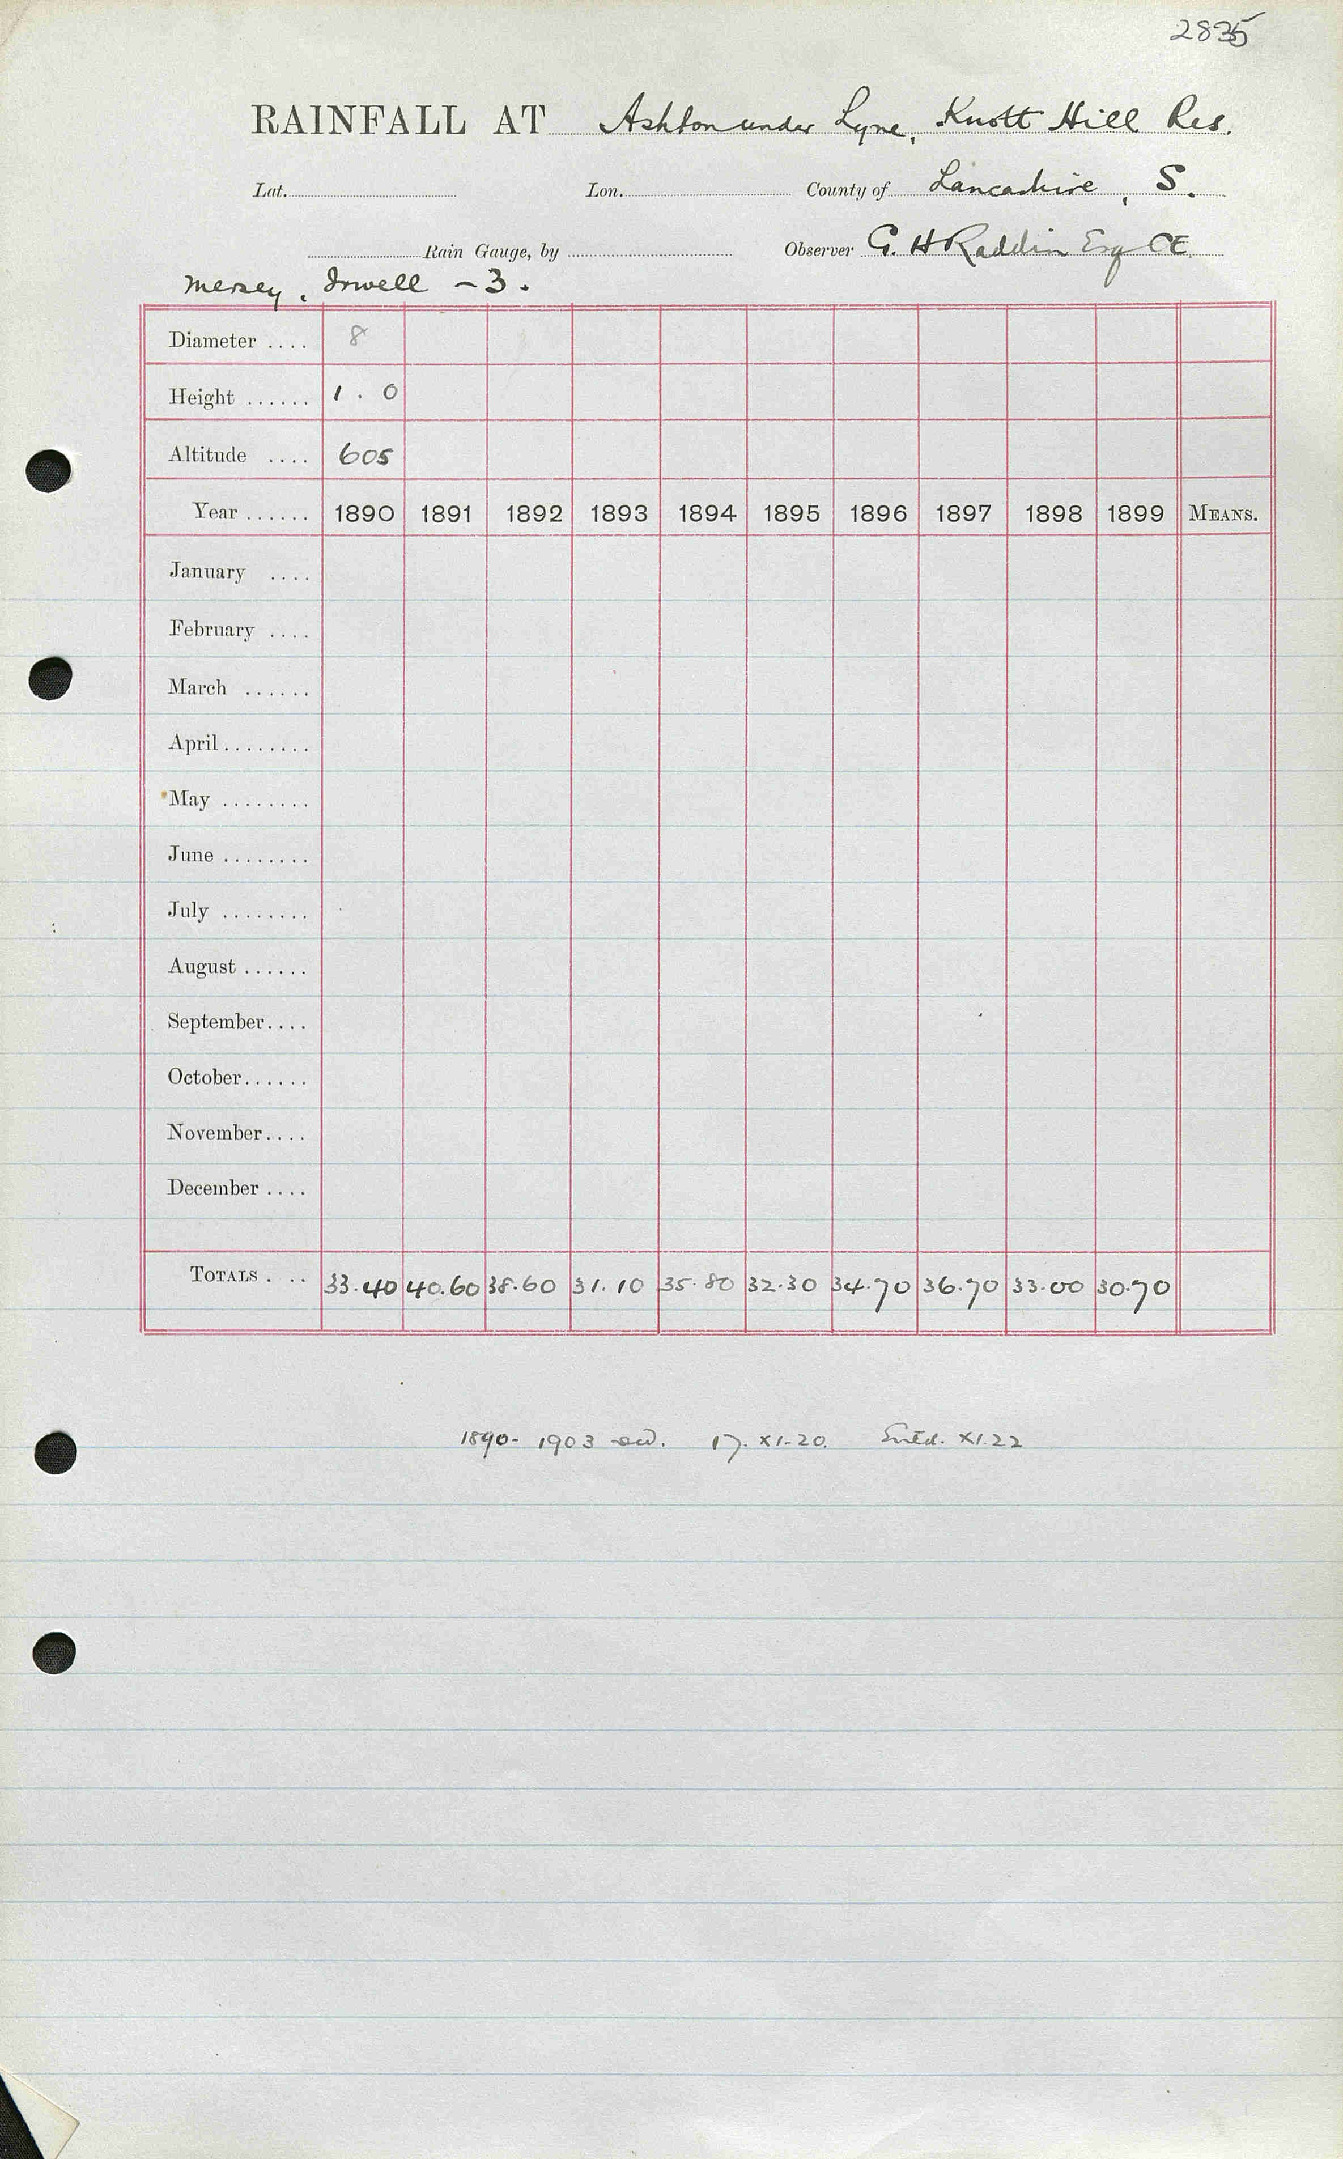 2835
RAINFALL AT Ashton under Lyne, Knott Hill Res.
Lat. Lon. County of Lancashire, S.
Rain Gauge, by Observer G. H Raddin Esq CE.
Mersey, Irwell - 3.
Diameter .... 8
Height ...... 1 . 0
Altitude .... 605
Year ...... 1890 1891 1892 1893 1894 1895 1896 1897 1898 1899 MEANS.
January ....
February ....
March ......
April ........
May ........
June ........
July ........
August ......
September....
October......
November....
December ....
TOTALS . .. 33.40 40.60 38.60 31.10 35.80 32.30 34.70 36.70 33.00 30.70
1890- 1903 17. XI-20. Entd. XI.22